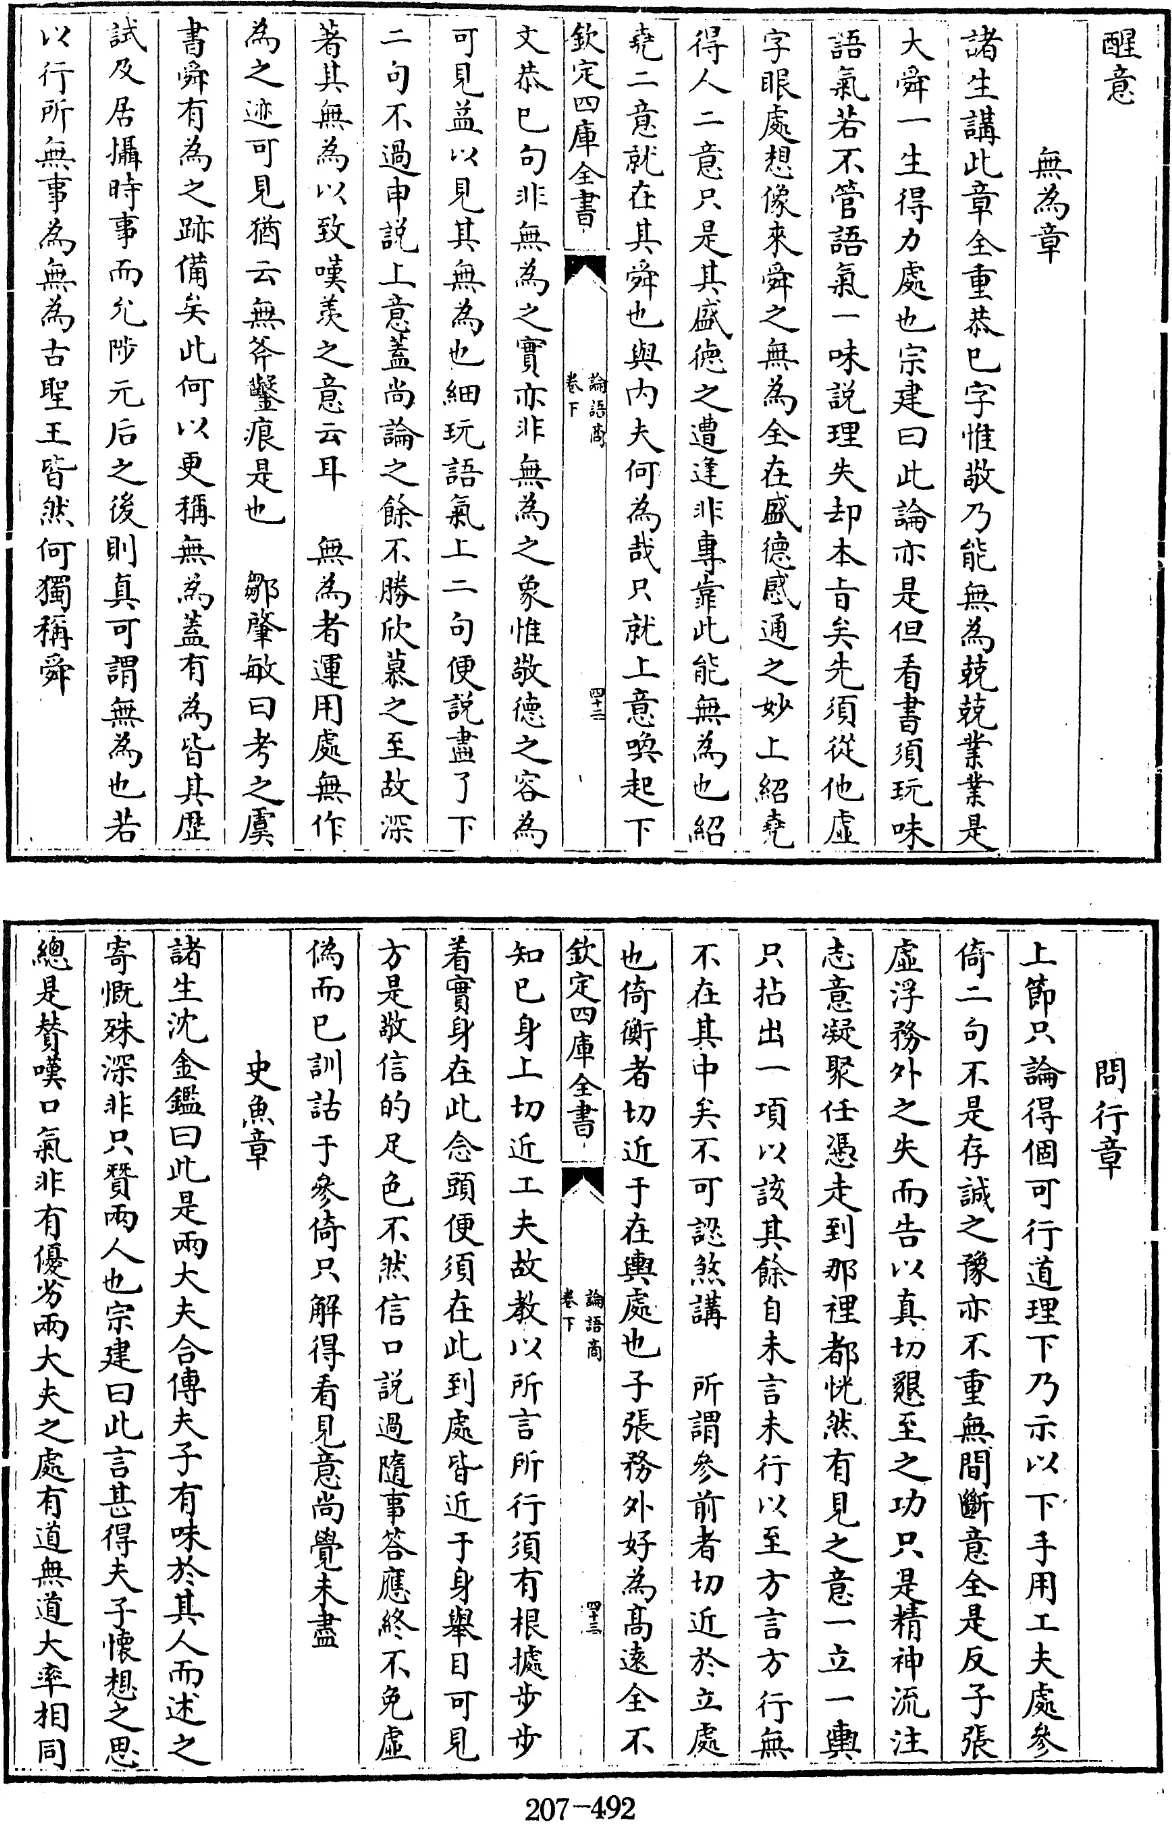 醒意
無為章
諸生講此章全重恭已字惟敬乃能無為兢兢業業是
大舜一生得力處也宗建曰此論亦是但看書須玩味
語氣若不管語氣一味說理失却本旨矣先須從他虛
字眼處想像來舜之無為全在盛德感通之妙上紹堯
得人二意只是其盛徳之遭逢非專靠此能無為也紹
堯二意就在其舜也與内夫何為哉只就上意喚起下
欽定四庫全書
論語商
卷下
四十二
文恭已句非無為之實亦非無為之象惟敬德之容為
可見益以見其無為也細玩語氣上二句便說盡了下
二句不過申説上意蓋尚論之餘不勝欣慕之至故深
著其無為以致嘆羨之意云耳　無為者運用處無作
為之迹可見猶云無斧鑿痕是也　鄒肇敏曰考之虞
書舜有為之跡備矣此何以更稱無為蓋有為皆其歴
試及居攝時事而允陟元后之後則真可謂無為也若
以行所無事為無為古聖王皆然何獨稱舜
問行章
上節只論得個可行道理下乃示以下手用工夫處參
倚二句不是存誠之豫亦不重無間斷意全是反子張
虛浮務外之失而告以真切懇至之功只是精神流注
志意凝聚任憑走到那裡都恍然有見之意一立一輿
只拈出一項以該其餘自未言未行以至方言方行無
不在其中矣不可認煞講　所謂參前者切近於立處
也倚衡者切近于在輿處也子張務外好為髙遠全不
欽定四庫全書
論語商
卷下
四十三
知已身上切近工夫故教以所言所行須有根據步步
着實身在此念頭便須在此到處皆近于身舉目可見
方是敬信的足色不然信口説過隨事答應終不免虛
偽而已訓詁于參倚只解得看見意尚覺未盡
史魚章
諸生沈金鑑曰此是兩大夫合傳夫子有味於其人而述之
寄慨殊深非只贊兩人也宗建曰此言甚得夫子懐想之思
總是賛嘆口氣非有優劣兩大夫之處有道無道大率相同
207-492